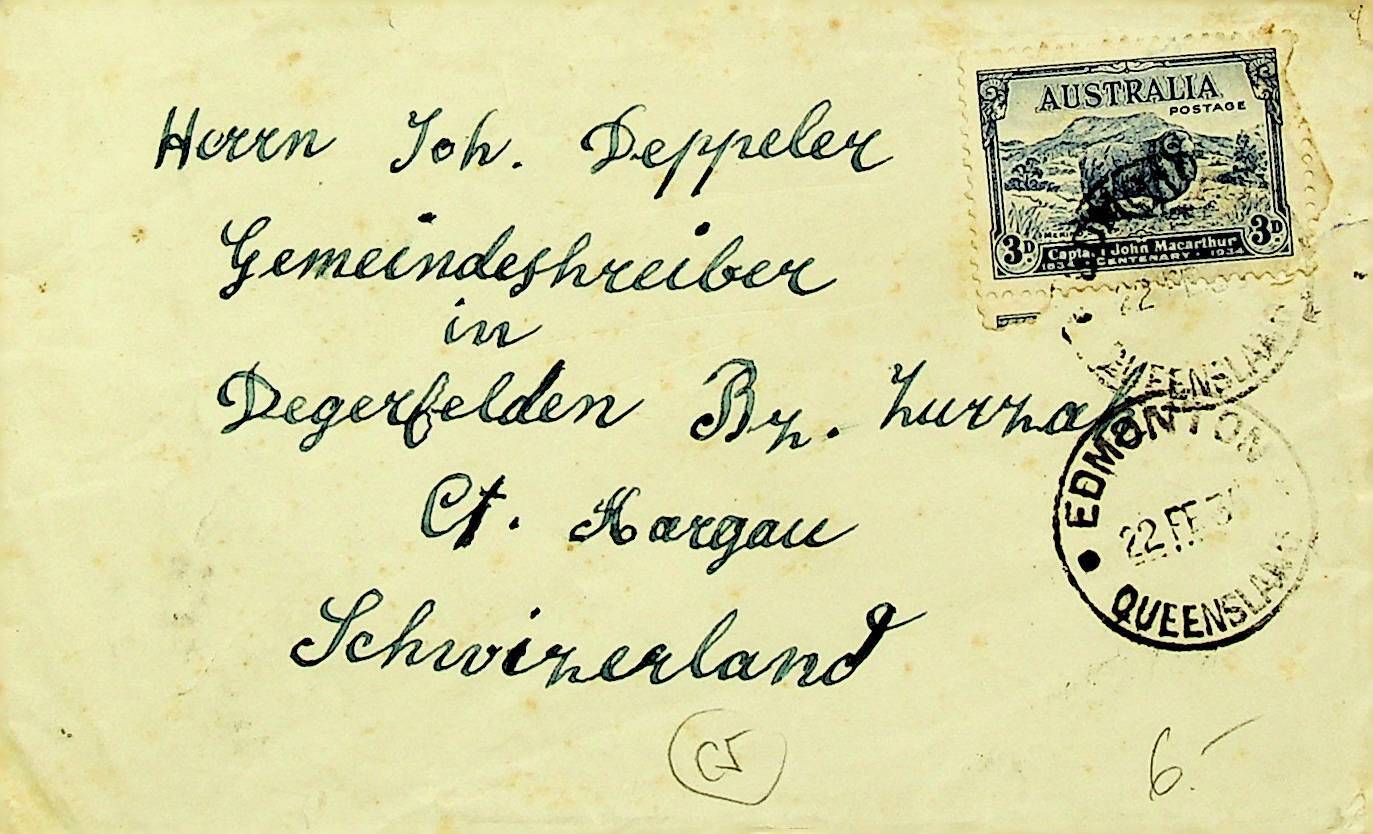 Herrn Joh. Deppeler
Gemeindeshreiber
in
Degerfelden Bz. Zurzak
Ct. Aargau
Schwizerland
AUSTRALIA
POSTAGE
3D
3D
John Macarthur
1834 CENTENARY 1934
22
QUEENSLAND
EDMONTON
22 FE 3
QUEENSLAND
6.-